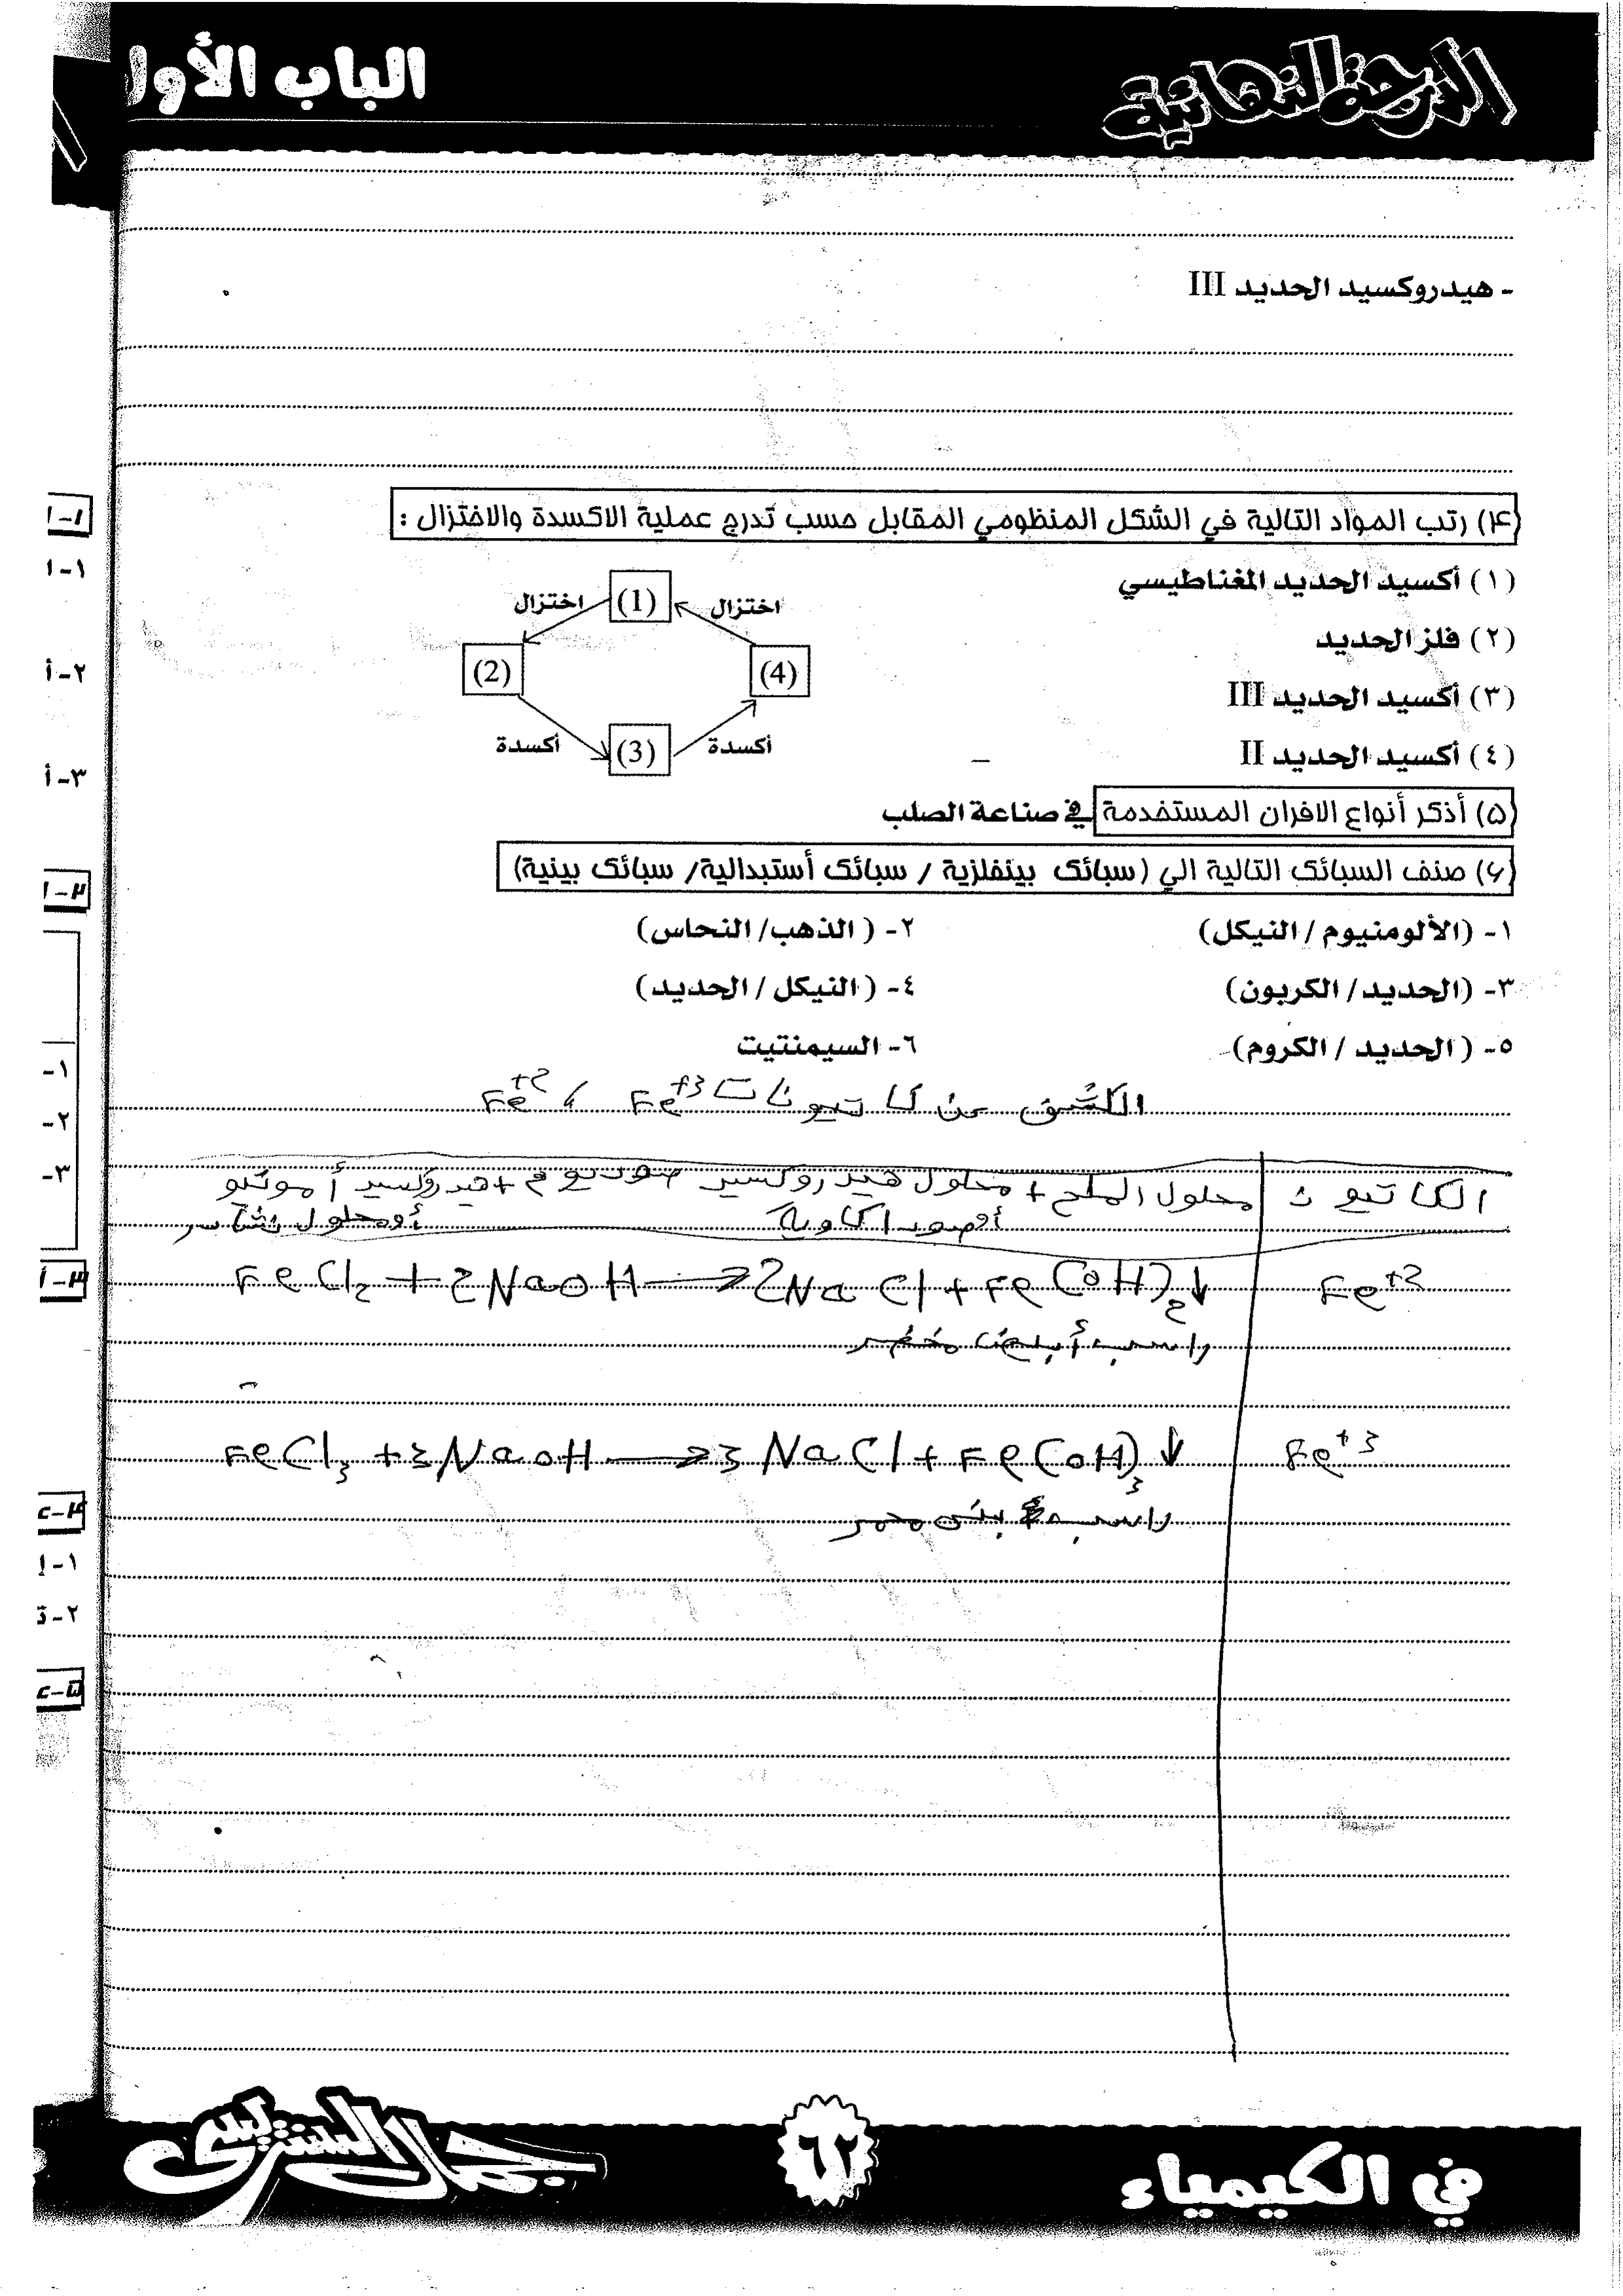 الدرجة النهائية
الباب الأول
- هيدروكسيد الحديد III
(٤) رتب المواد التالية في الشكل المنظومي المقابل حسب تدرج عملية الاكسدة والاختزال :
(١) أكسيد الحديد المغناطيسي
(٢) فلز الحديد
(٣) أكسيد الحديد III
(٤) أكسيد الحديد II
اختزال
(1)
اختزال
(2)
(4)
أكسدة
(3)
أكسدة
(٥) أذكر أنواع الافران المستخدمة في صناعة الصلب
(٦) صنف السبائك التالية الي (سبائك بينفلزية / سبائك أستبدالية/ سبائك بينية)
١- (الألومنيوم / النيكل)
٢- (الذهب/ النحاس)
٣- (الحديد/ الكربون)
٤- (النيكل / الحديد)
٥- (الحديد / الكروم)
٦- السيمنتيت
الكشف عن كاتيونات Fe+3 ، Fe+2
الكاتيون
محلول الملح + محلول هيدروكسيد صوديوم + هيدروكسيد أمونيو
أو صودا كاوية
أو محلول نشادر
Fe+2
FeCl2 + 2NaOH → 2NaCl + Fe(OH)2↓
راسب أبيض مخضر
Fe+3
FeCl3 + 3NaOH → 3NaCl + Fe(OH)3↓
راسب بنى محمر
١-١
١-١
٢-أ
٣-أ
٢-١
١-
٢-
٣-
في الكيمياء
٦٢
جمال السنتريسى